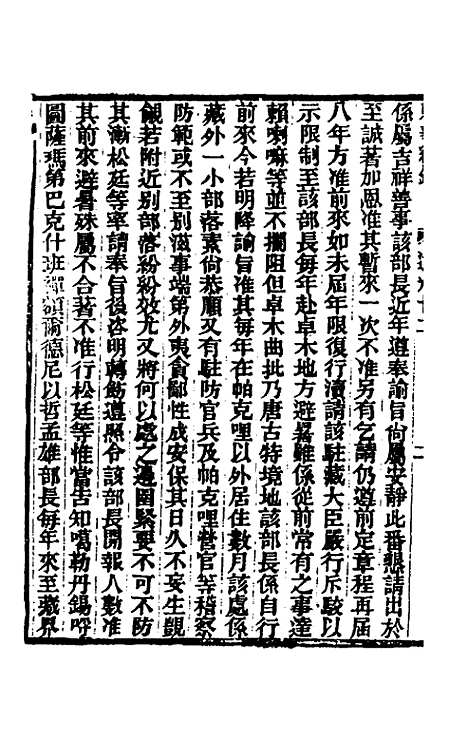 係屬吉祥善事該部長近年遵奉諭旨尚屬安靜此番懇請出於
至誠著加恩准其暫來一次不准另有乞請仍遵前定章程再屆
八年方准前來如未屆年限復行瀆請該駐藏大臣嚴行斥駮以
示限制至該部長每年赴卓木地方避暑雖係從前常有之事達
賴喇嘛等並不攔阻但卓木曲批乃唐古特境地該部長係自行
前來今若明降諭旨准其每年在帕克哩以外居住數月該處係
藏外一小部落素尙恭順又有駐防官兵及帕克哩營官等稽察
防範或不至別滋事端第外夷貪鄙性成安保其日久不妄生覬
覦若附近別部落紛紛效尤又將何以處之邊圉緊要不可不防
其漸松廷等率請奉旨後咨明轉飭遵照令該部長開報人數准
其前來避暑殊屬不合著不准行松廷等惟當告知噶勒丹錫呼
圖薩瑪第巴克什班禪額爾德尼以哲孟雄部長每年來至藏界